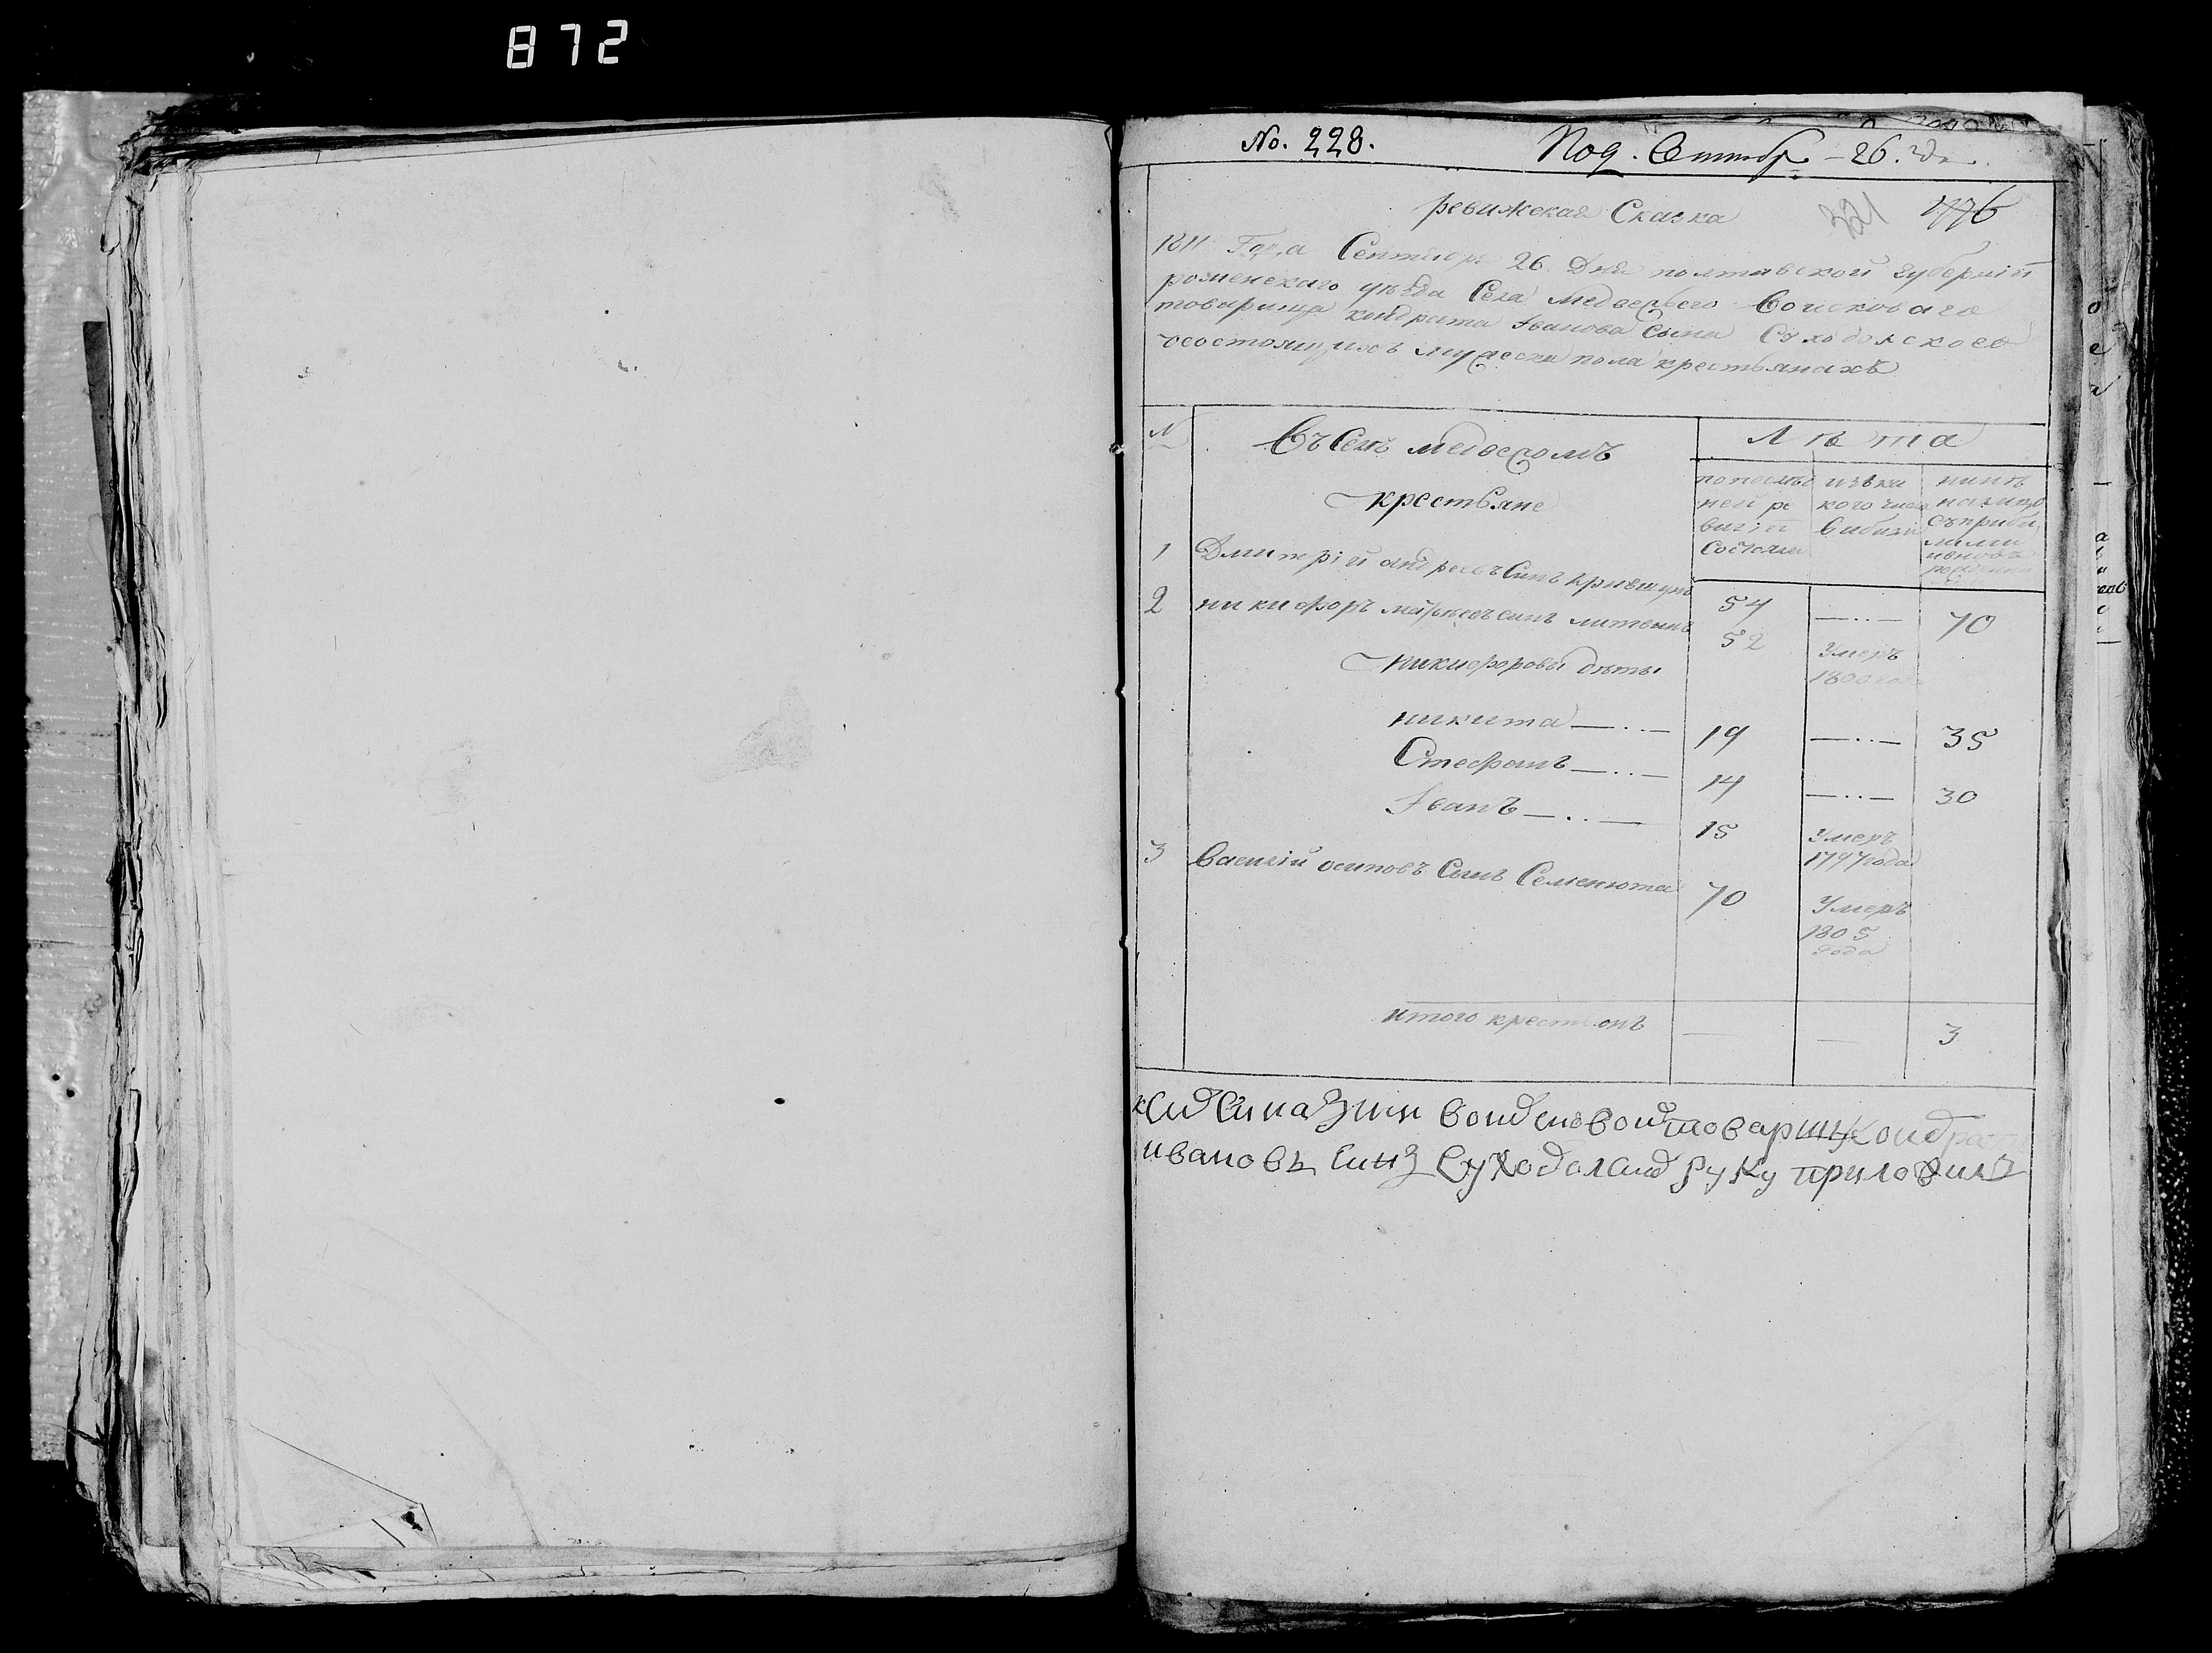 872
No. 228.
Под. Сентебр – 26. дня
ревижская Сказка
321 776
1811 Года Сентебря 26 Дня полтавской губернiи
роменскаго уезда Села Медвежого Войсковаго
товарища кондрата Iванова Сына Суходолского
осостоящихъ мужеска пола крестьянахъ
№ Въ Селе медвежомъ Лѣта
крестьяне
попослѣд ней ре визiи состояли
изъ ни кого числа выбыли
нинѣ налицо
1 Дмитрiй андреевъ Синъ кривицун 54 —..— 70
2 никифоръ маркеевъ синъ литвинъ 52 Умеръ 1800 года
никифоровы дѣты
никита —..— 19 —..— 35
Стефанъ —..— 14 —..— 30
Iванъ —..— 15 Умеръ 1797 года
3 Василiй осиповъ Сынъ Семенюта 70 Умеръ 1805 Года
итого крестьянъ — — 3
товарищ Кондрат
ивановъ Синъ Суходолский руку приложилъ